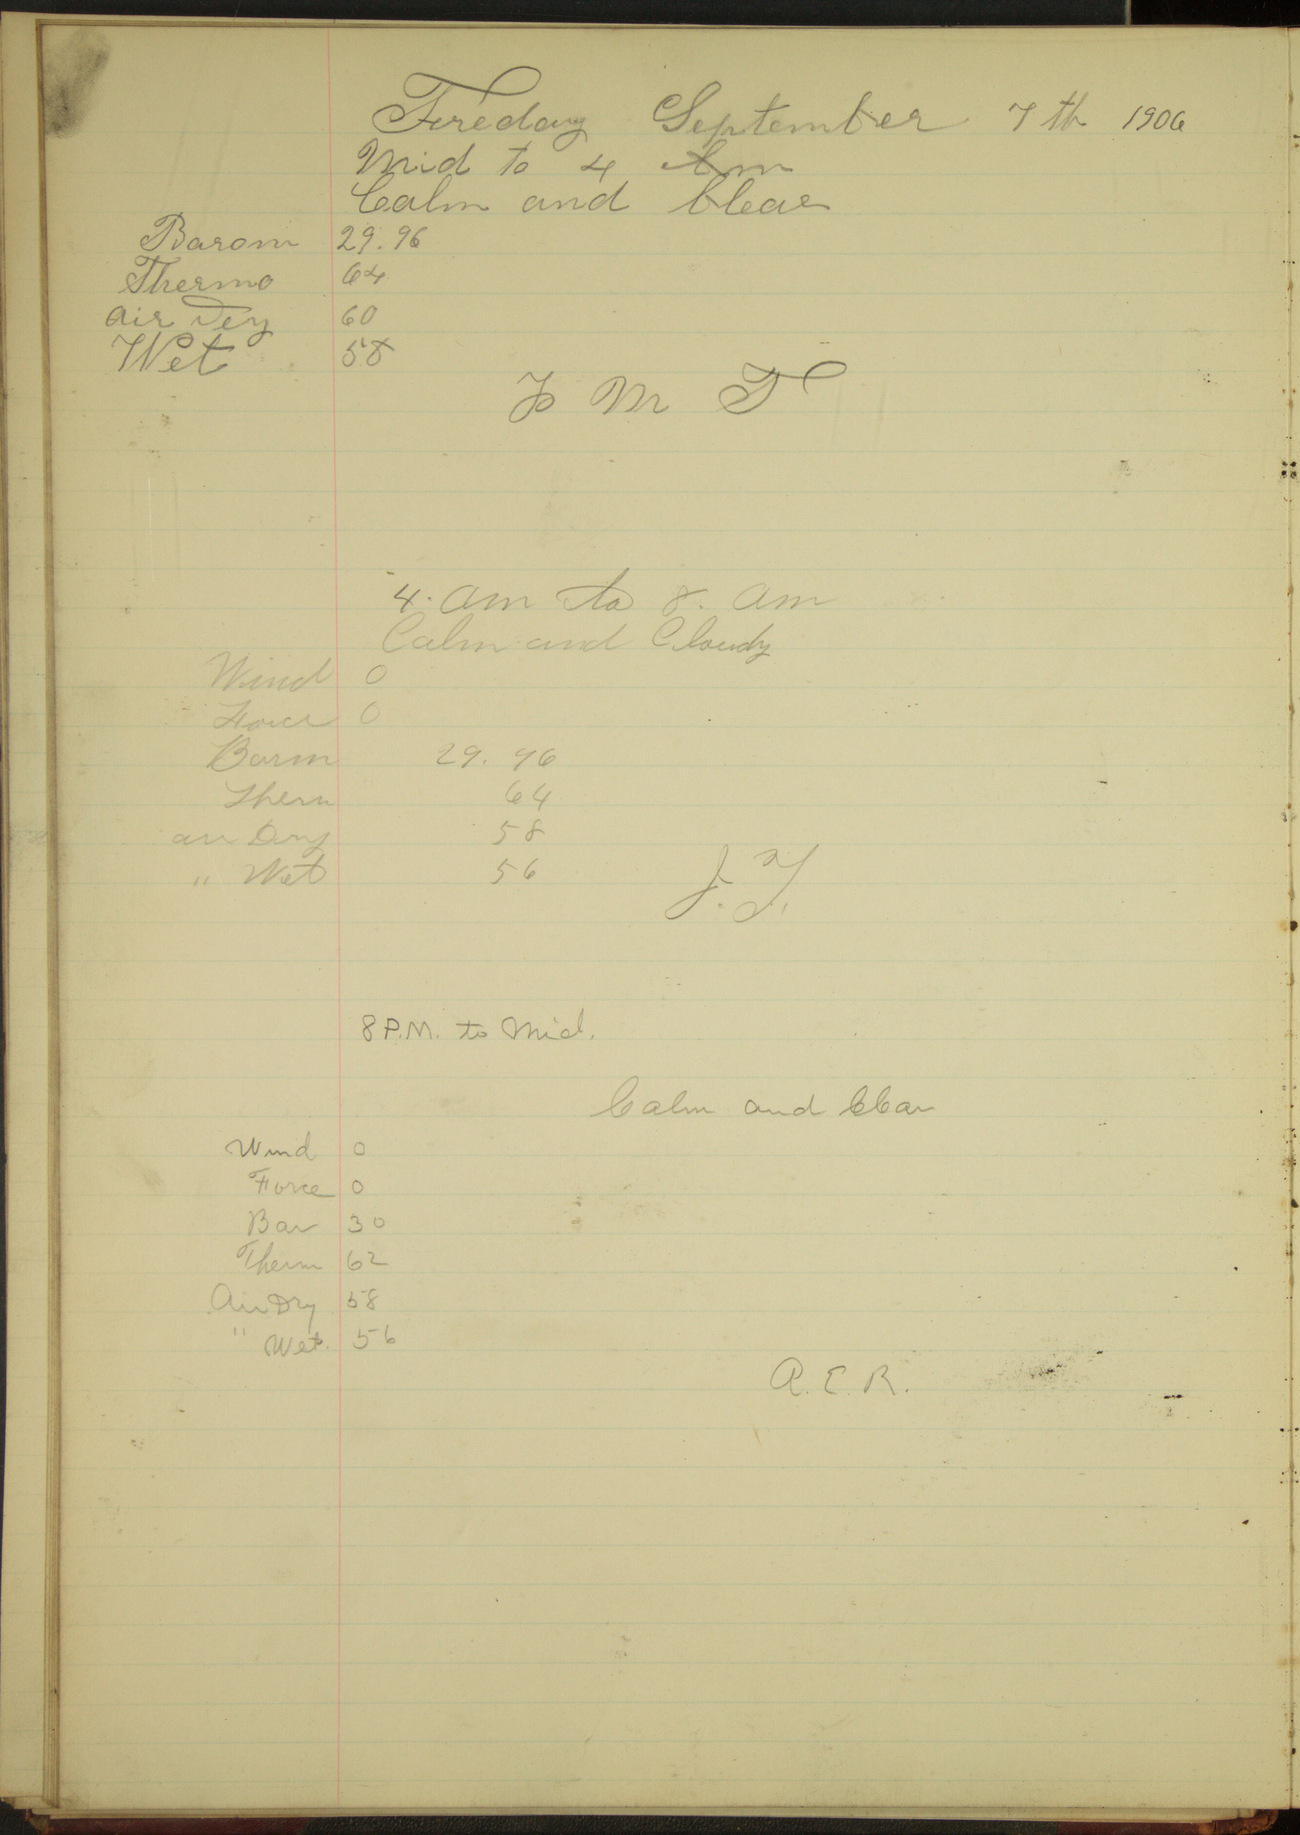 Fireday September 7th 1906
Mid to 4 Am
Calm and Clear
Barom 29.96
Thermo 64
Air Dry 60
Wet 58
M T
4. am to 8. am
Calm and Cloudy
Wind 0
Force 0
Barm 29.96
Therm 64
air Dry 58
" Wet 56
J. T.
8 P.M. to Mid.
Calm and Clear
Wind 0
Force 0
Bar 30
Therm 62
Air Dry 58
" Wet. 56
A. E. R.